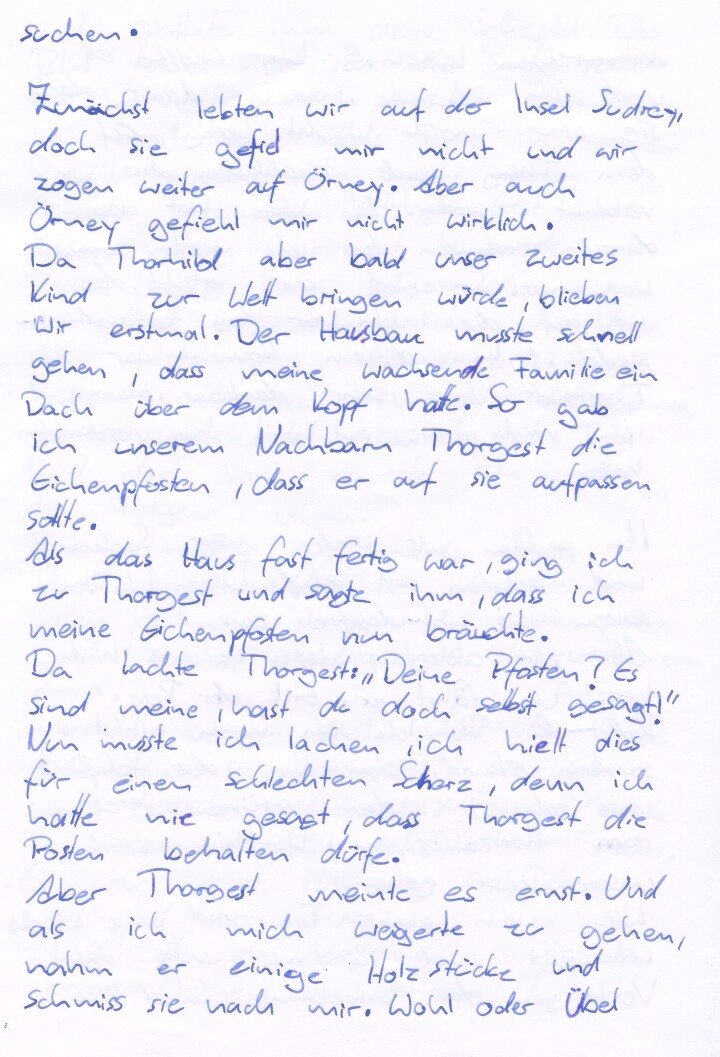 suchen.
Zunächst lebten wir auf der Insel Sudrey,
doch sie gefiel mir nicht und wir
zogen weiter auf Örney. Aber auch
Örney gefiehl mir nicht wirklich.
Da Thorhild aber bald unser zweites
Kind zur Welt bringen würde blieben
wir erstmal. Der Hausbau musste schnell
gehen, dass meine wachsende Familie ein
Dach über dem Kopf hatte. So gab
ich unserem Nachbarn Thorgest die
Eichenpfosten, dass er auf sie aufpassen
sollte.
Als das Haus fast fertig war, ging ich
zu Thorgest und sagte ihm, dass ich
meine Eichenpfosten nun bräuchte.
Da lachte Thorgest: „Deine Pfosten? Es
sind meine, hast du doch selbst gesagt!"
Nun musste ich lachen, ich hielt dies
für einen schlechten Scherz, denn ich
hatte nie gesagt, dass Thorgest die
Posten behalten dürfe.
Aber Thorgest meinte es ernst. Und
als ich mich weigerte zu gehen,
nahm er einige Holzstücke und
schmiss sie nach mir. Wohl oder Übel